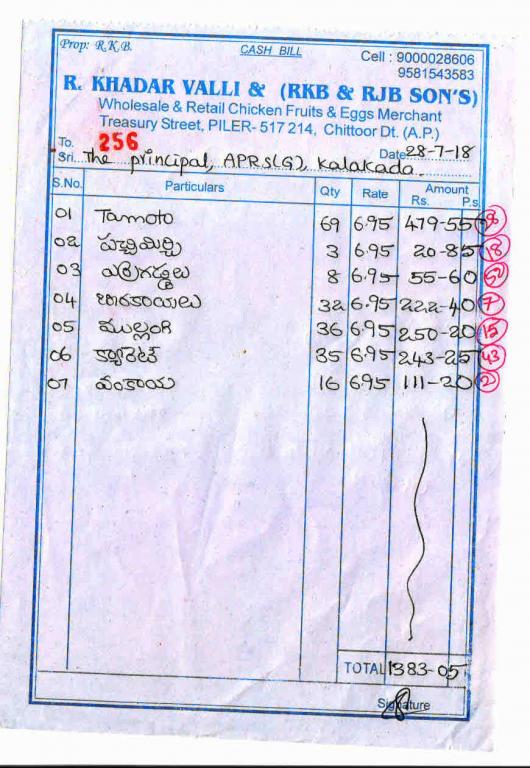 Prop: R.K.B. CASH BILL Cell : 9000028606
9581543583
R. KHADAR VALLI & (RKB & RJB SON'S)
Wholesale & Retail Chicken Fruits & Eggs Merchant
Treasury Street, PILER- 517 214, Chittoor Dt. (A.P.)
To. 256 Date 28-7-18
Sri. The principal, APRS(G), Kalakada.
S.No. Particulars Qty Rate Amount
Rs. P.s.
01 Tamoto 69 6.95 479-55
02 పచ్చిమిర్చి 3 6.95 20-85 18
03 ఎర్రగడ్డలు 8 6.95 55-60
04 బీరకాయలు 32 6.95 222-40 7
05 ముల్లంగి 36 6.95 250-20 15
06 క్యారెట్ 35 6.95 243-25 43
07 వంకాయ 16 695 111-20 2
TOTAL 1383-05
Signature